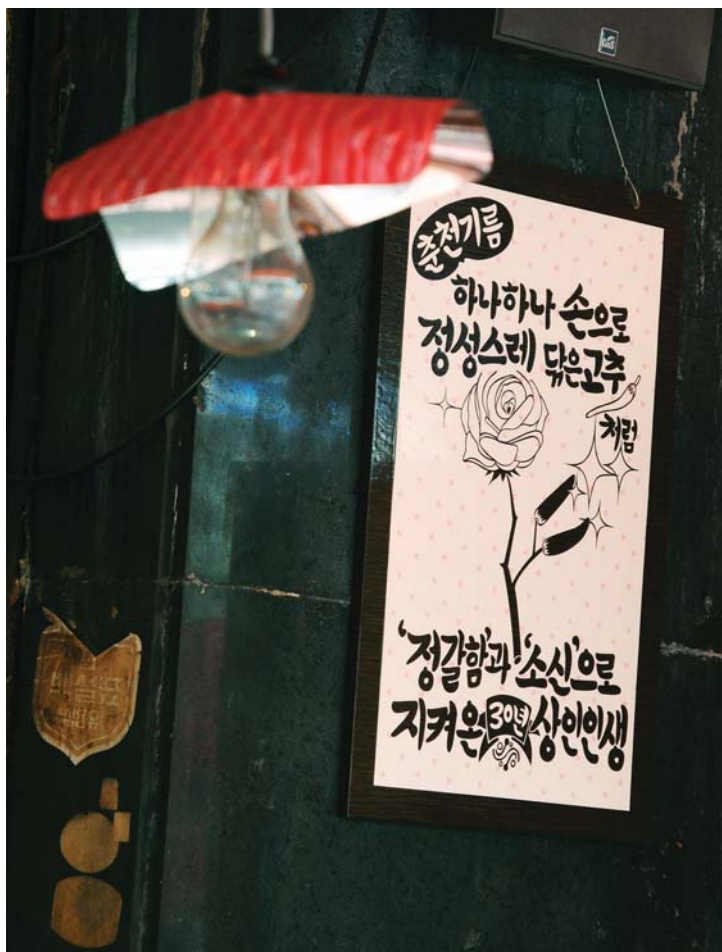 춘천기름
하나하나 손으로
정성스레 닦은고추
처럼
'정갈함'과 '소신'으로
지켜온 30년 상인인생